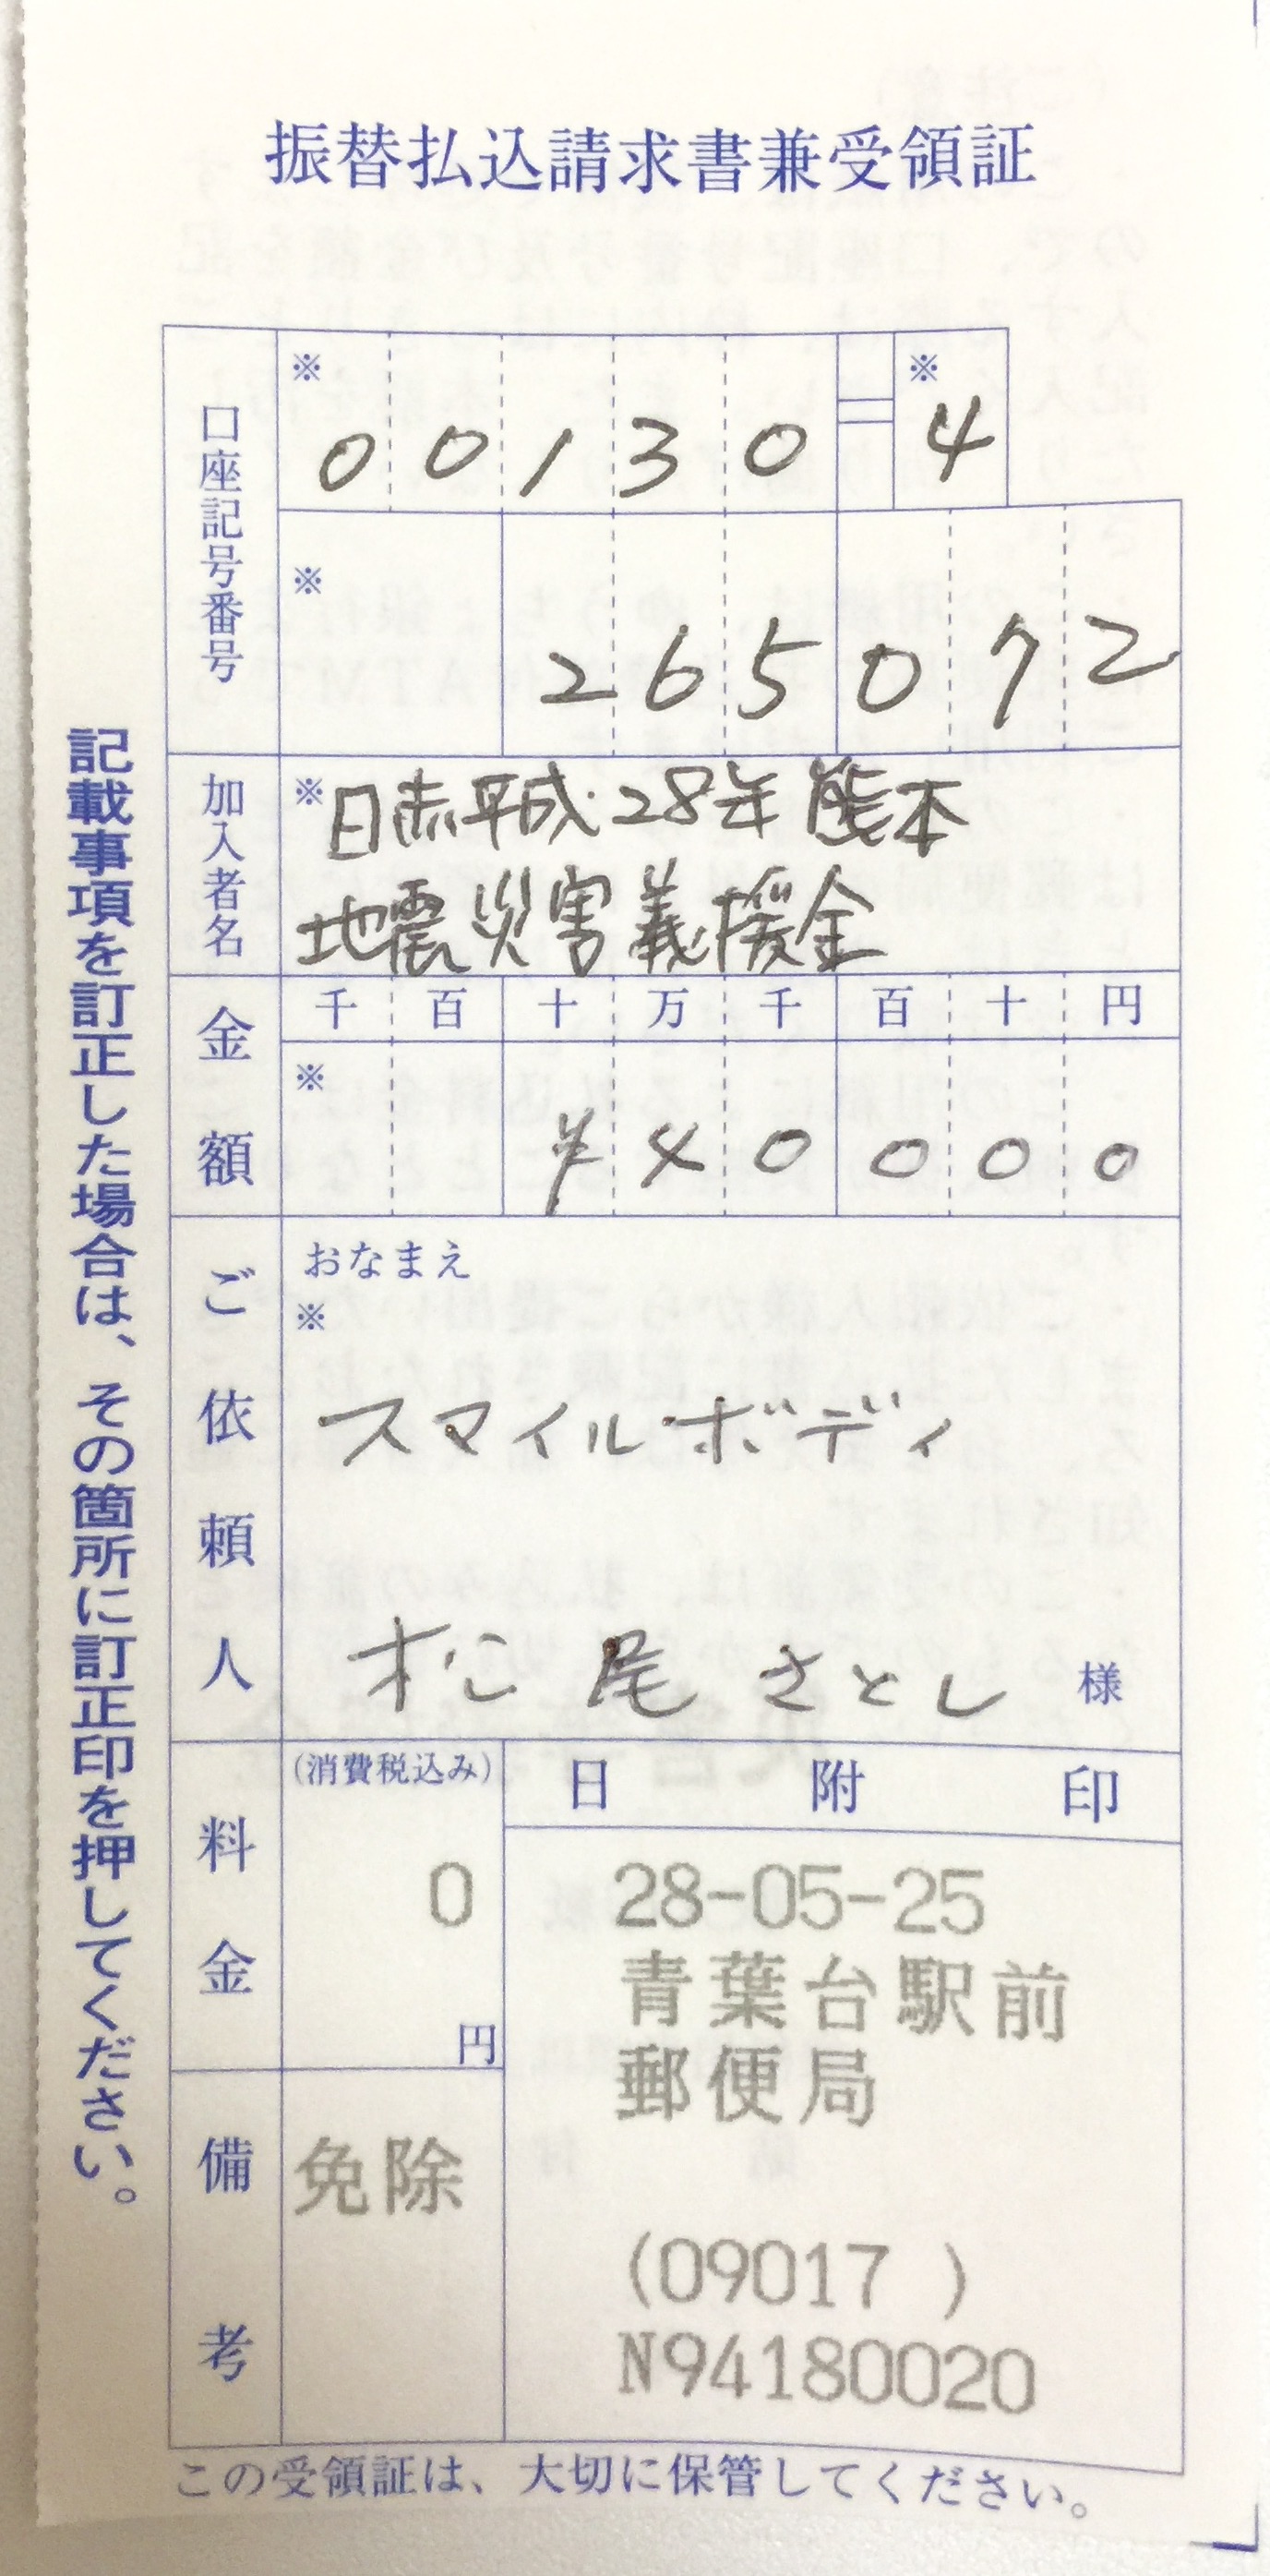 振替払込請求書兼受領証
口座記号番号
※ 0 0 1 3 0 = ※ 4
※ 2 6 5 0 7 2
加入者名
※日赤平成28年熊本
地震災害義援金
金額
千 百 十 万 千 百 十 円
※ ¥ 4 0 0 0 0
ご依頼人
おなまえ
※
スマイルボディ
松尾さとし 様
料金
(消費税込み)
0
円
備考
免除
日附印
28-05-25
青葉台駅前
郵便局
(09017 )
N94180020
この受領証は、大切に保管してください。
記載事項を訂正した場合は、その箇所に訂正印を押してください。